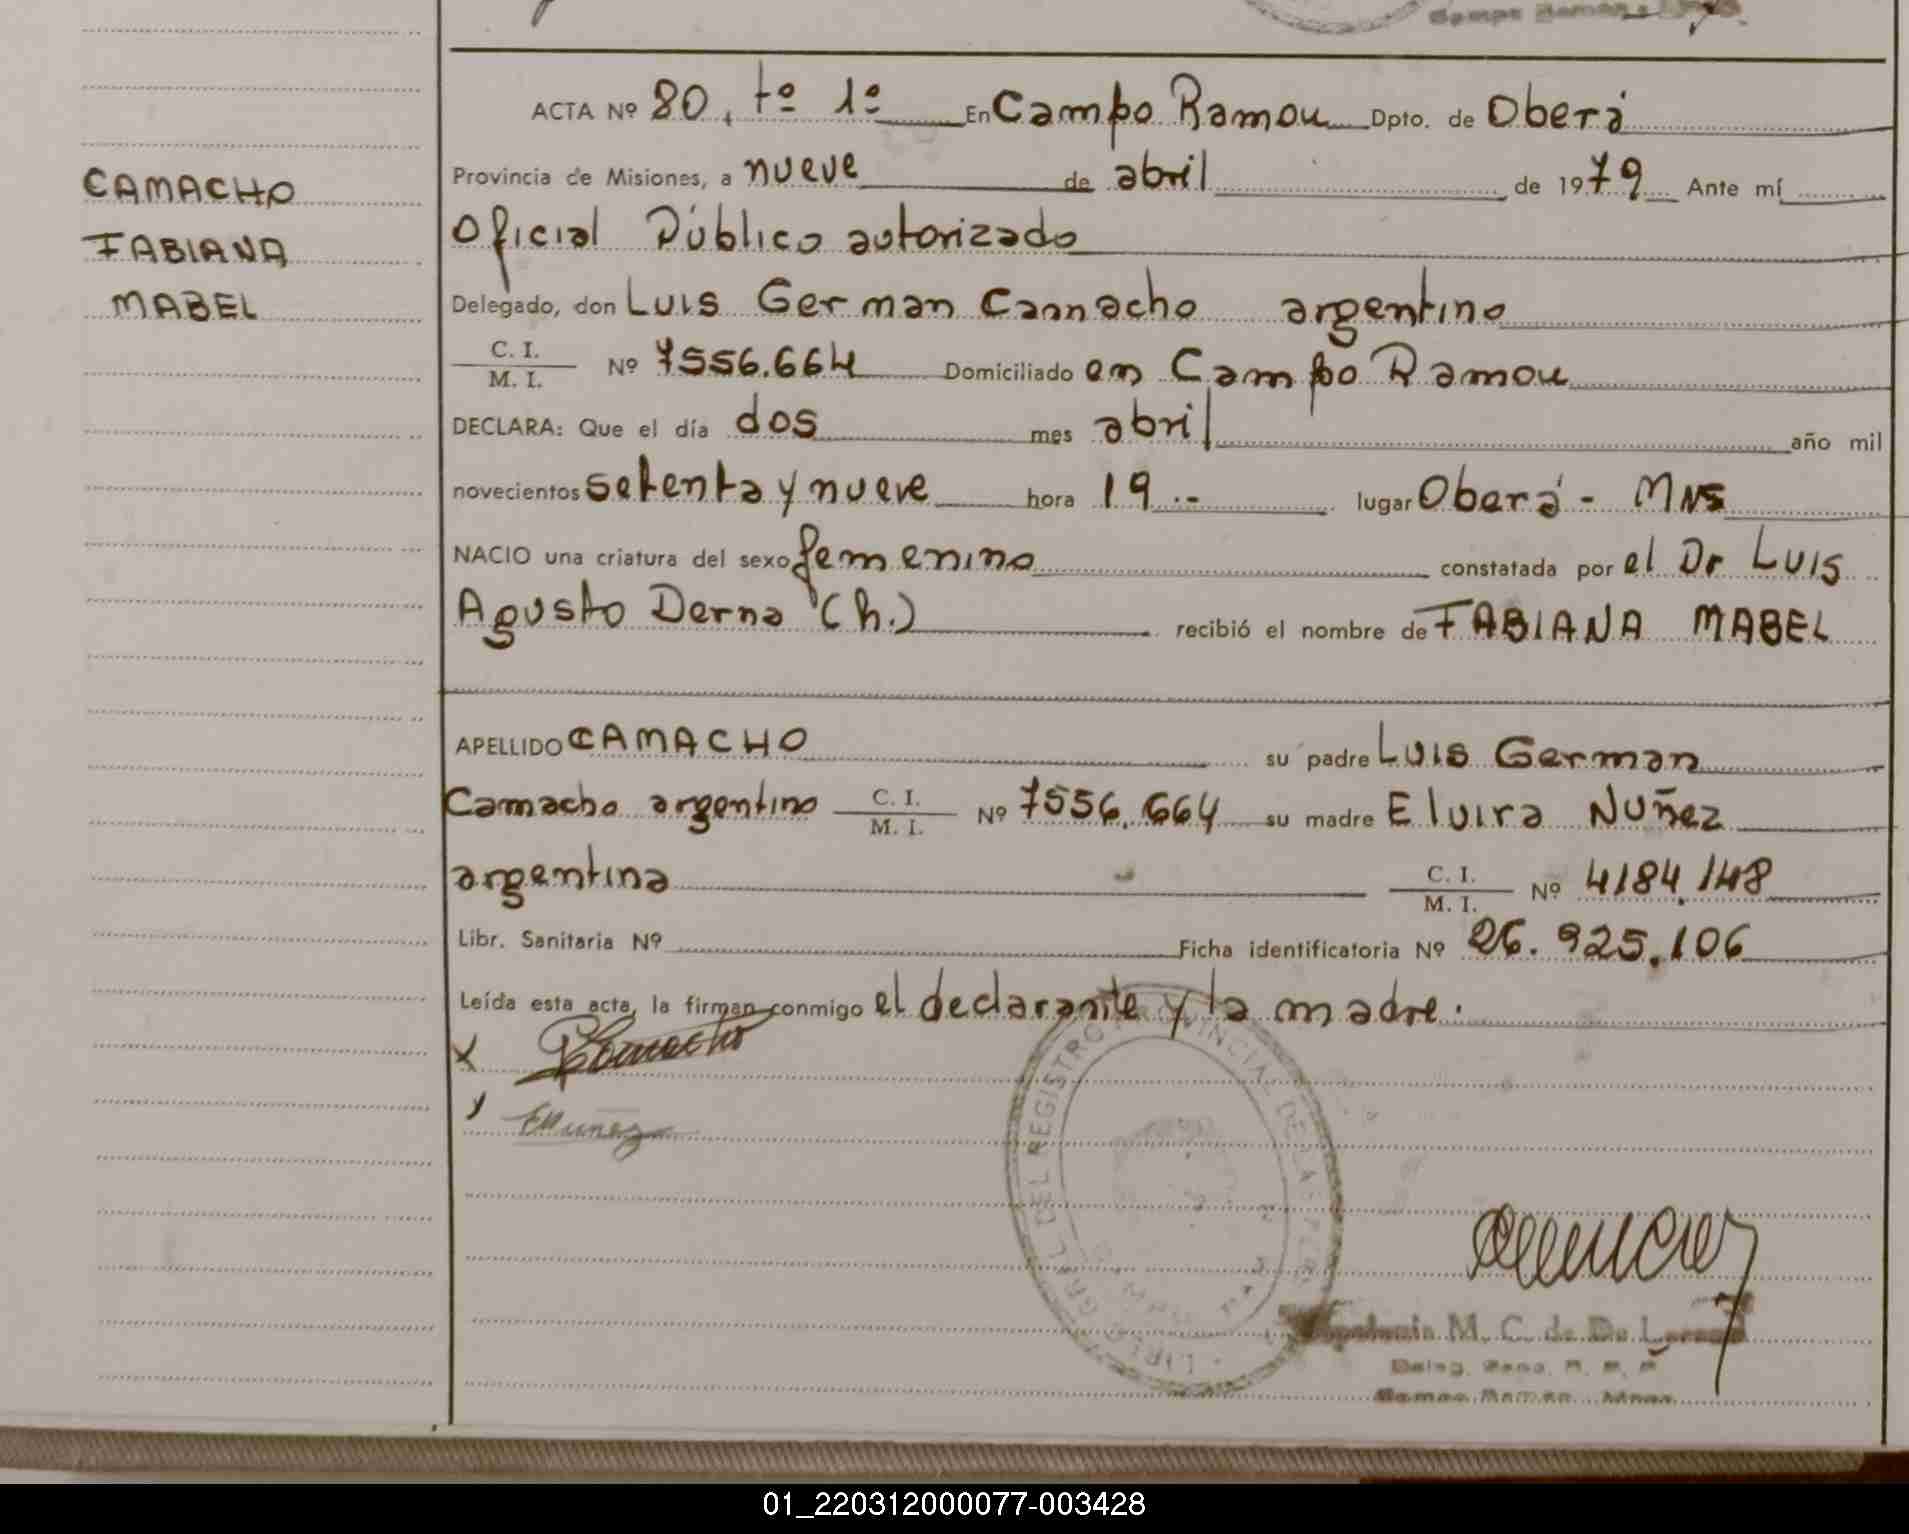 Campo Ramon
ACTA Nº 80, tº 1º En Campo Ramou Dpto. de Oberá
Provincia de Misiones, a nueve de abril de 1979 Ante mí
Oficial Público autorizado
Delegado, don Luis German Camacho argentino
C. I. / M. I. Nº 7556.664 Domiciliado en Campo Ramou
DECLARA: Que el día dos mes abril año mil
novecientos setenta y nueve hora 19.- lugar Oberá - MNS
NACIO una criatura del sexo femenino constatada por el Dr Luis
Agusto Derna (h.) recibió el nombre de FABIANA MABEL
APELLIDO CAMACHO su padre Luis German
Camacho argentino C. I. / M. I. Nº 7556.664 su madre Elvira Nuñez
argentina C. I. / M. I. Nº 4184.148
Libr. Sanitaria Nº Ficha identificatoria Nº 26.925.106
Leída esta acta, la firman conmigo el declarante y la madre.
CAMACHO
FABIANA
MABEL
Camacho
ENunez
GRAL DEL REGISTRO PROVINCIAL DE LAS PERS
M. C. de De
01_220312000077-003428